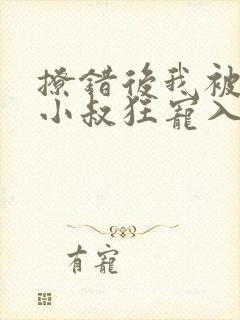 撩錯後我被
小叔狂寵入
有寵